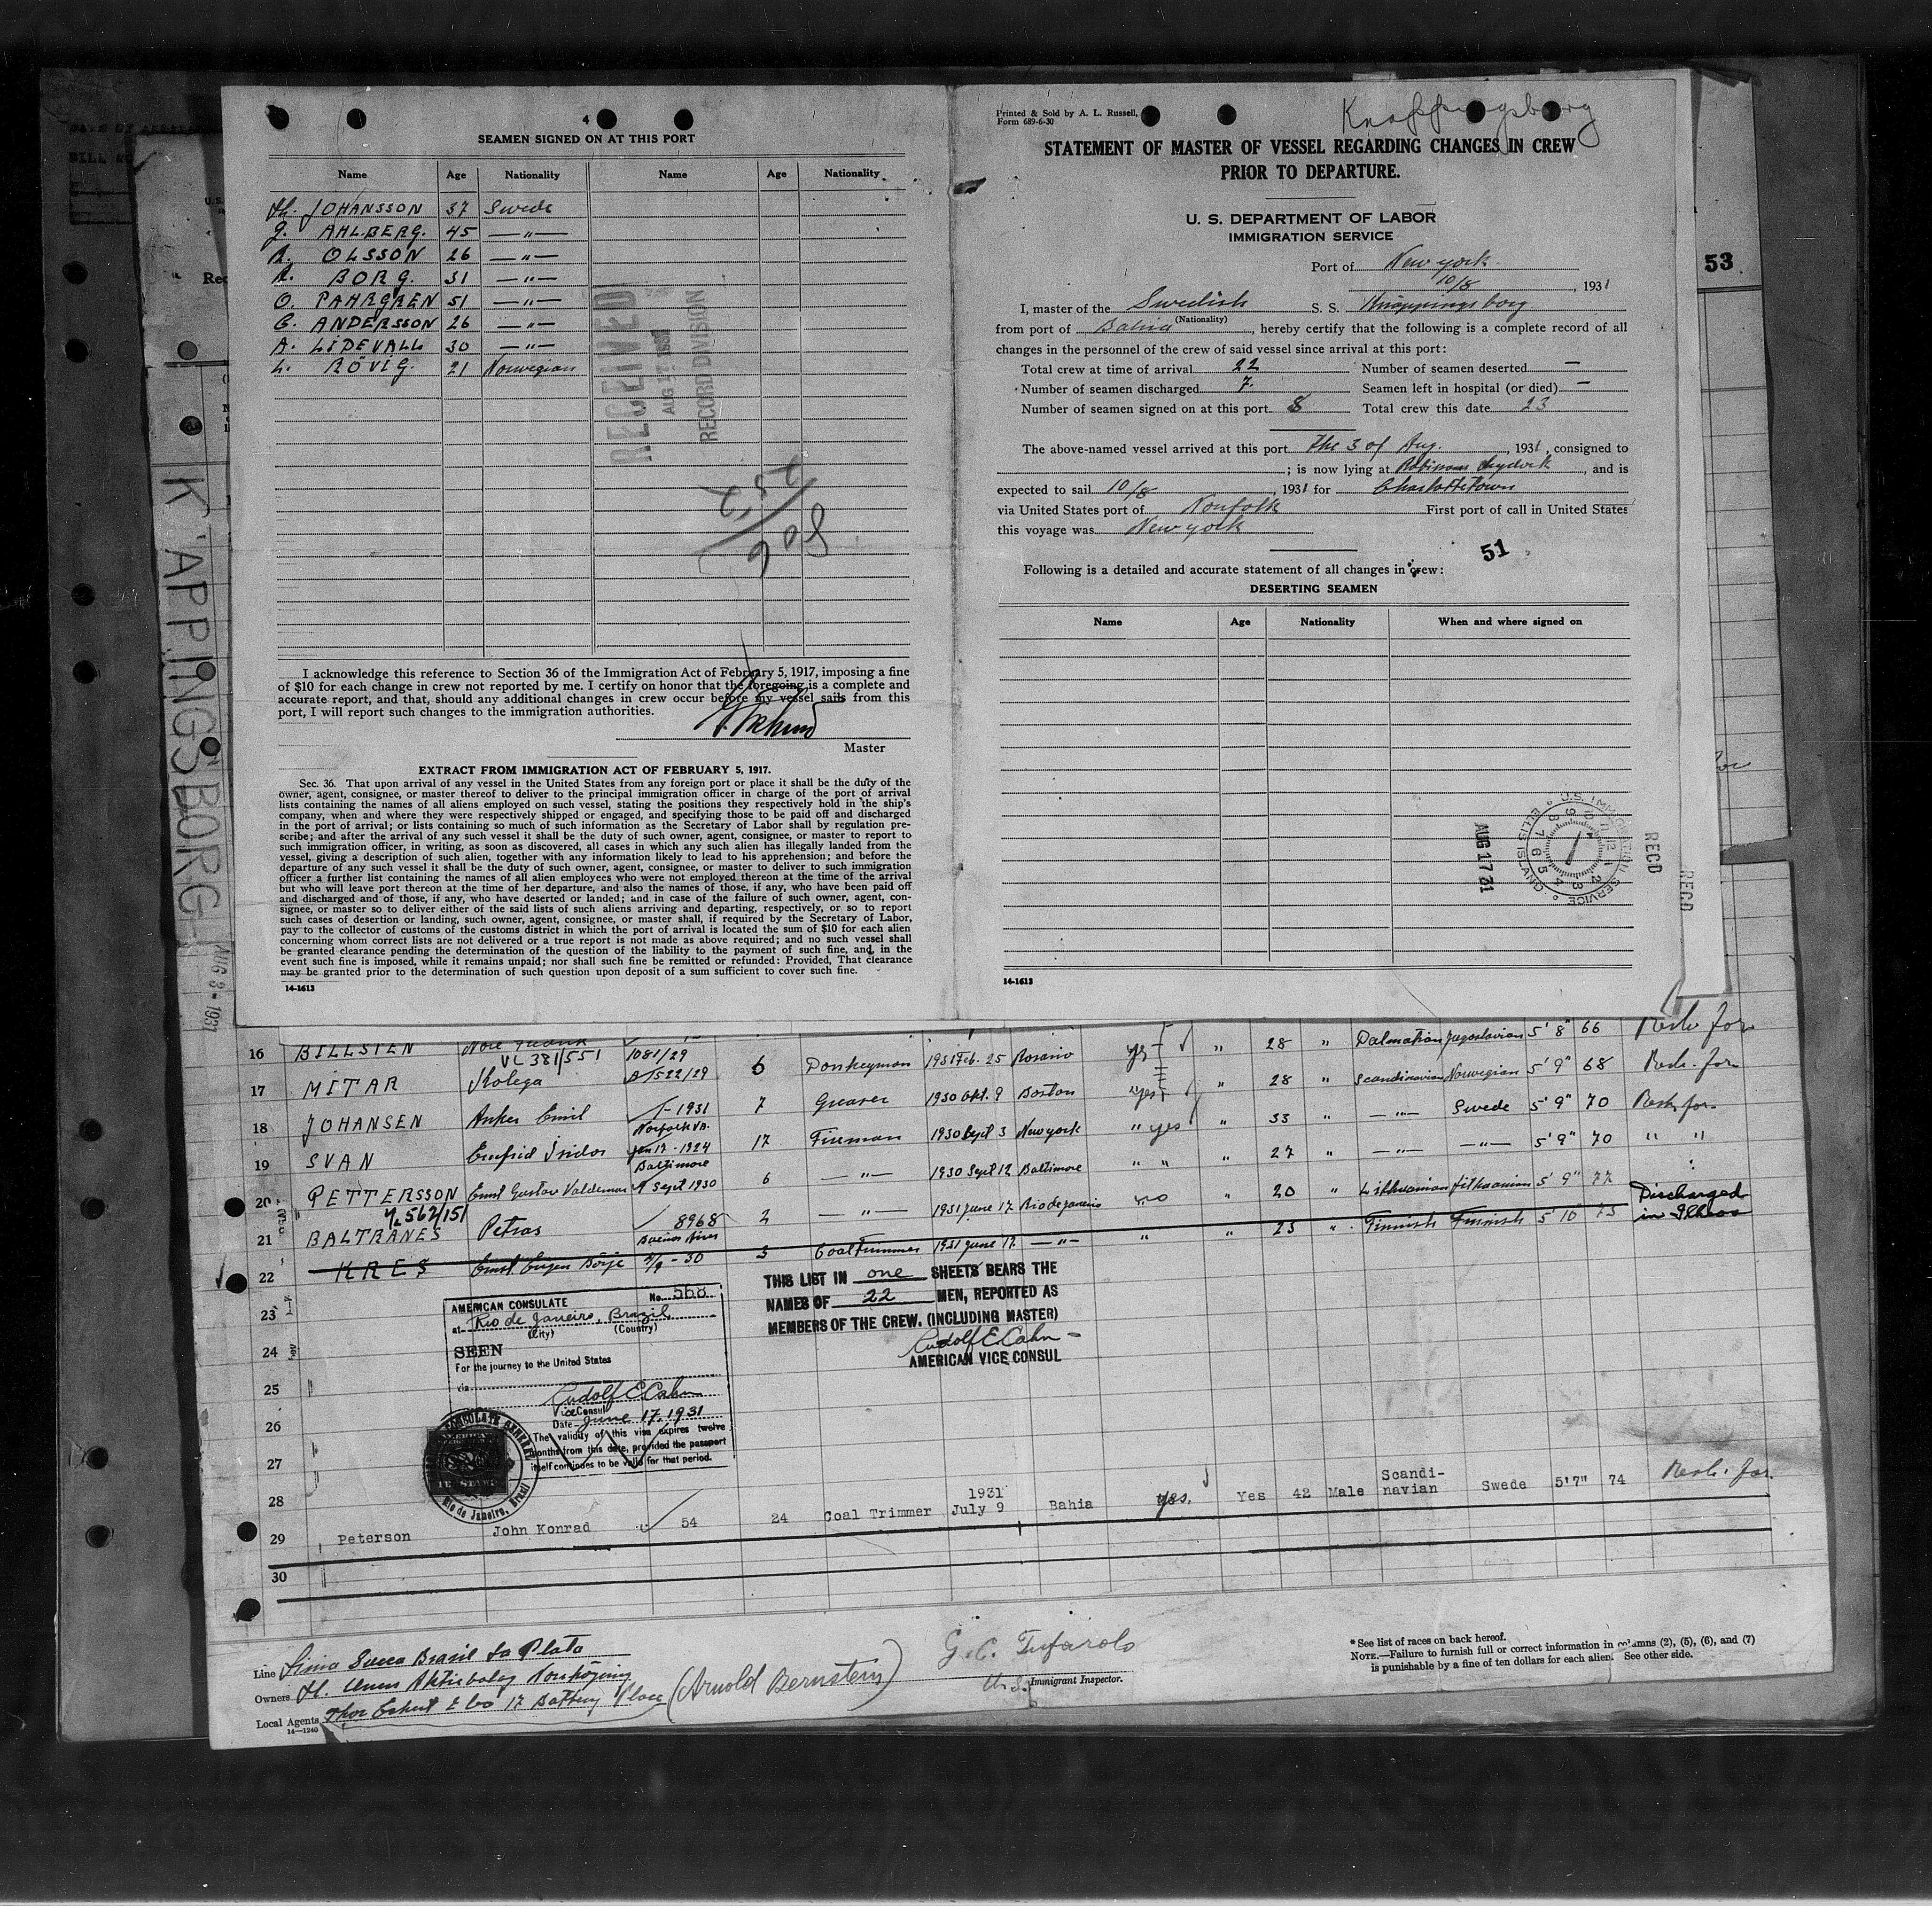 4
SEAMEN SIGNED ON AT THIS PORT
Name Age Nationality Name Age Nationality
JOHANSSON 37 Swede
G. AHLBERG. 45 —"—
R. OLSSON 26 —"—
R. BORG. 31 —"—
O. PAHRGREN 51 —"—
G. ANDERSSON 26 —"—
A. LIDEVALL 30 —"—
L. RÖVIG. 21 Norwegian
RECEIVED
AUG 17 1931
RECORD DIVISION
I acknowledge this reference to Section 36 of the Immigration Act of February 5, 1917, imposing a fine
of $10 for each change in crew not reported by me. I certify on honor that the foregoing is a complete and
accurate report, and that, should any additional changes in crew occur before my vessel sails from this
port, I will report such changes to the immigration authorities.
Master
EXTRACT FROM IMMIGRATION ACT OF FEBRUARY 5, 1917.
Sec. 36. That upon arrival of any vessel in the United States from any foreign port or place it shall be the duty of the
owner, agent, consignee, or master thereof to deliver to the principal immigration officer in charge of the port of arrival
lists containing the names of all aliens employed on such vessel, stating the positions they respectively hold in the ship's
company, when and where they were respectively shipped or engaged, and specifying those to be paid off and discharged
in the port of arrival; or lists containing so much of such information as the Secretary of Labor shall by regulation pre-
scribe; and after the arrival of any such vessel it shall be the duty of such owner, agent, consignee, or master to report to
such immigration officer, in writing, as soon as discovered, all cases in which any such alien has illegally landed from the
vessel, giving a description of such alien, together with any information likely to lead to his apprehension; and before the
departure of any such vessel it shall be the duty of such owner, agent, consignee, or master to deliver to such immigration
officer a further list containing the names of all alien employees who were not employed thereon at the time of the arrival
but who will leave port thereon at the time of her departure, and also the names of those, if any, who have been paid off
and discharged and of those, if any, who have deserted or landed; and in case of the failure of such owner, agent, con-
signee, or master so to deliver either of the said lists of such aliens arriving and departing, respectively, or so to report
such cases of desertion or landing, such owner, agent, consignee, or master shall, if required by the Secretary of Labor,
pay to the collector of customs of the customs district in which the port of arrival is located the sum of $10 for each alien
concerning whom correct lists are not delivered or a true report is not made as above required; and no such vessel shall
be granted clearance pending the determination of the question of the liability to the payment of such fine, and, in the
event such fine is imposed, while it remains unpaid; nor shall such fine be remitted or refunded: Provided, That clearance
may be granted prior to the determination of such question upon deposit of a sum sufficient to cover such fine.
14-1613
Printed & Sold by A. L. Russell,
Form 689-6-30
Knappingsborg
STATEMENT OF MASTER OF VESSEL REGARDING CHANGES IN CREW
PRIOR TO DEPARTURE.
U. S. DEPARTMENT OF LABOR
IMMIGRATION SERVICE
Port of New york
10/8, 1931
I, master of the Swedish S. S. Knäppingsborg
(Nationality)
from port of Bahia, hereby certify that the following is a complete record of all
changes in the personnel of the crew of said vessel since arrival at this port:
Total crew at time of arrival 22 Number of seamen deserted —
Number of seamen discharged 7. Seamen left in hospital (or died) —
Number of seamen signed on at this port 8 Total crew this date 23
The above-named vessel arrived at this port the 3 of Aug., 1931, consigned to
; is now lying at Robinsons, and is
expected to sail 10/8, 1931 for Charlottetown
via United States port of Norfolk First port of call in United States
this voyage was New york
51
Following is a detailed and accurate statement of all changes in crew:
DESERTING SEAMEN
Name Age Nationality When and where signed on
AUG 17 31
U.S. IMMIGRATION SERVICE ELLIS ISLAND
RECD
RECD
14-1613
53
K'APPINGSBORG
AUG 3 - 1931
16 BILLSTEN
VL 381/551 1081/29 6 Donkeyman 1931 Feb. 25 Rosario yes 28 " Dalmation Jugoslavian 5' 8" 66 Resh for
17 MITAR Kolega 522/29 7 Greaser 1930 Okt. 9 Boston yes " 28 " Scandinavian Norwegian 5' 9" 68 Resh. for
18 JOHANSEN Anker Emil 1931 Norfolk VA. 17 Fireman 1930 Sept 3 New york " yes " 33 " —"— Swede 5' 9" 70 Resh for
19 SVAN Enefrid Isidor 1924 Baltimore 6 —"— 1930 Sept 12 Baltimore " " " 27 " —"— —"— 5' 9" 70 " "
20 PETTERSSON Ernst Gustav Valdemar Sept 1930 2 —"— 1931 June 17 Rio de Janeiro no " 20 " Lithuanian Lithuanian 5' 9" 77
562/151
21 BALTRANES Petras 8968 Buenos Aires 3 Coal Trimmer 1931 June 17. —"— " " 23 " Finnish Finnish 5' 10 73 Discharged in Ilheos
22 KRES Ernst Eugen Börje 30
23
24
25
26
27
28
29 Peterson John Konrad 54 24 Coal Trimmer 1931 July 9 Bahia yes. Yes 42 Male Scandi-navian Swede 5'7" 74 Resh. for.
30
AMERICAN CONSULATE No. 568
at Rio de Janeiro, Brazil
(City) (Country)
SEEN
For the journey to the United States
via
Rudolf E. Cahn
Vice Consul
Date June 17, 1931
The validity of this visa expires twelve
months from this date, provided the passport
itself continues to be valid for that period.
Rio de Janeiro, Brazil
THIS LIST IN one SHEETS BEARS THE
NAMES OF 22 MEN, REPORTED AS
MEMBERS OF THE CREW. (INCLUDING MASTER)
Rudolf E. Cahn
AMERICAN VICE CONSUL
Line Linea Sueca Brasil La Plata
Owners Aktiebolag Norrköping
Local Agents Thor Eckert & Co 17 Battery Place (Arnold Bernstein)
14—1240
G. C. Tufarolo
U.S. Immigrant Inspector.
* See list of races on back hereof.
NOTE.—Failure to furnish full or correct information in columns (2), (5), (6), and (7)
is punishable by a fine of ten dollars for each alien. See other side.